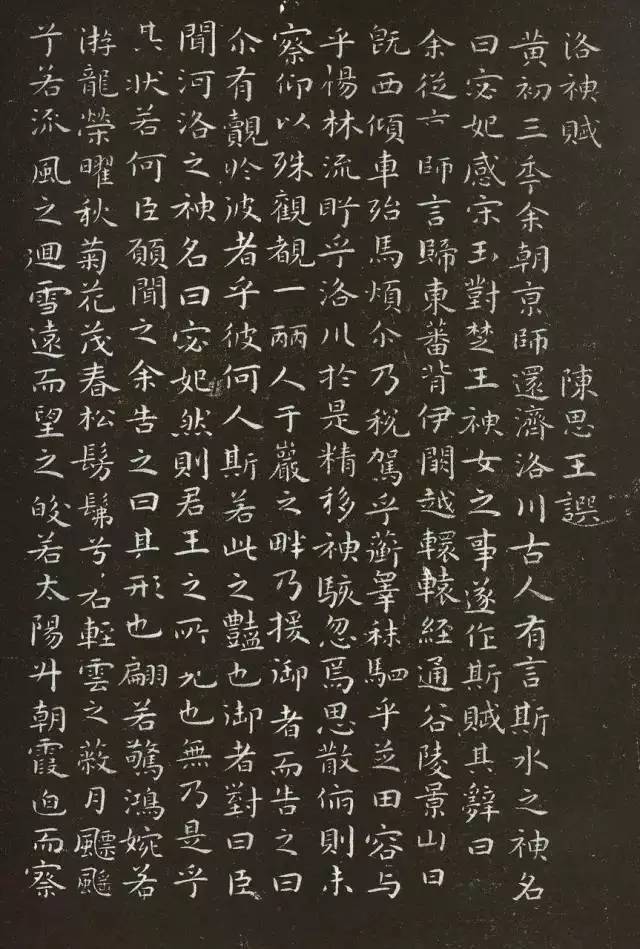 洛神賦 陳思王譔
黄初三秊余朝京師還濟洛川古人有言斯水之神名
曰宓妃感宋玉對楚王神女之事遂作斯賦其辭曰
余從京師言歸東蕃背伊闕越轘轅經通谷陵景山日
既西傾車殆馬煩尒乃稅駕乎蘅皐秣駟乎芝田容与
乎楊林流眄乎洛川於是精移神駭忽焉思散俯則未
察仰以殊觀覩一麗人于巖之畔乃援御者而告之曰
尒有覿於彼者乎彼何人斯若此之豔也御者對曰臣
聞河洛之神名曰宓妃然則君王之所見也無乃是乎
其狀若何臣願聞之余告之曰其形也翩若驚鴻婉若
游龍榮曜秋菊花茂春松髣髴兮若輕雲之蔽月飄飖
兮若流風之迴雪遠而望之皎若太陽升朝霞迫而察